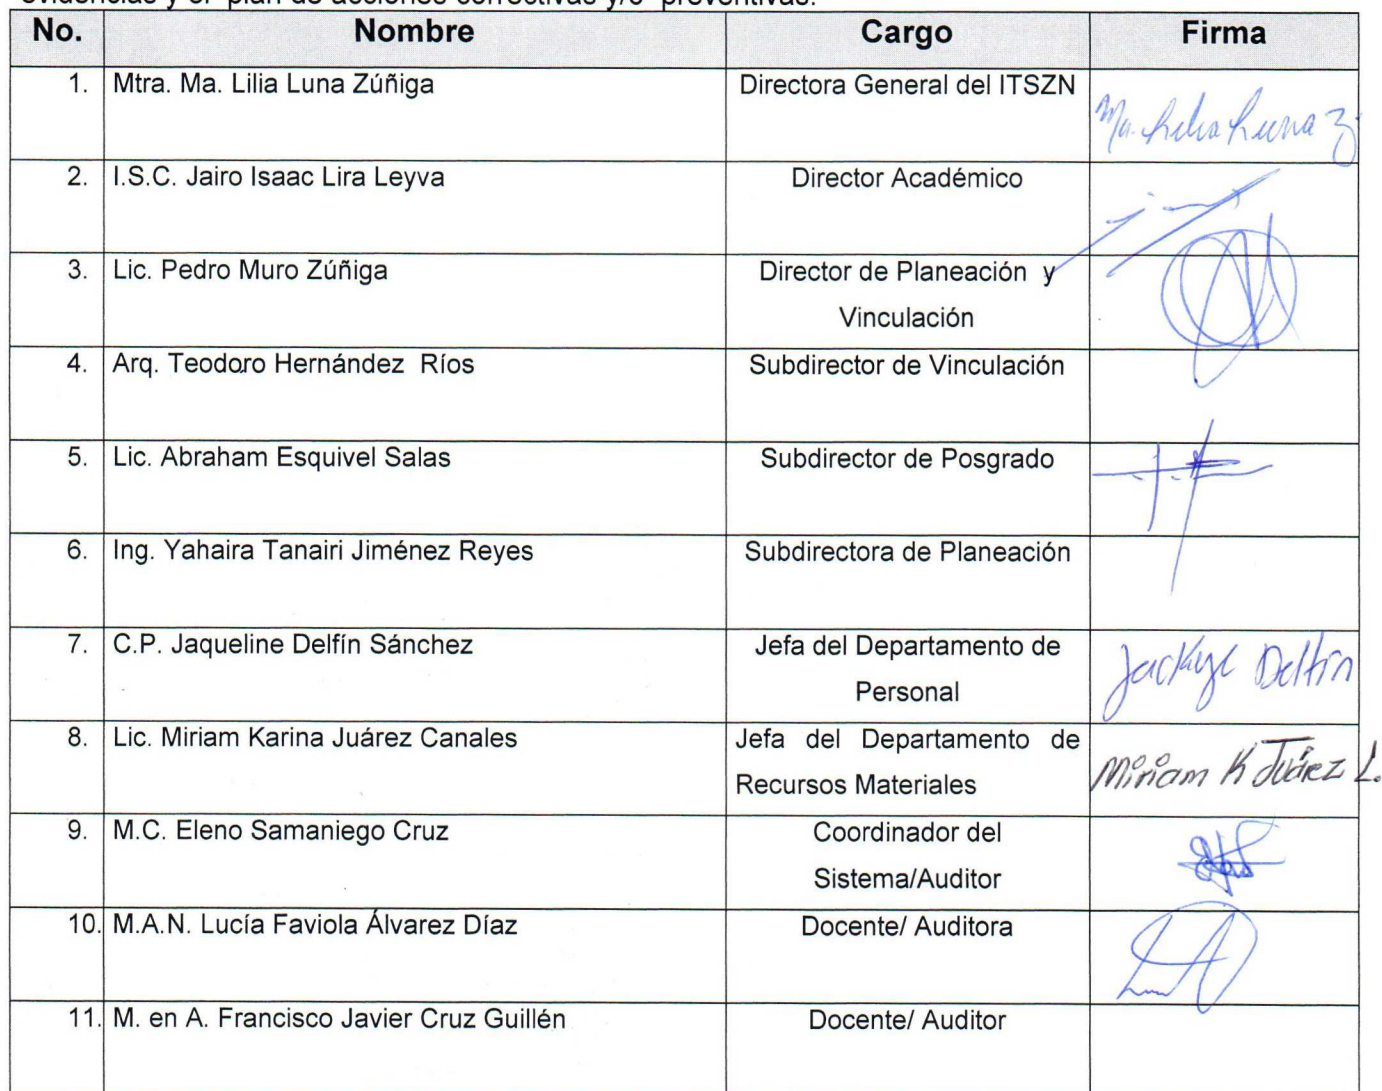 evidencias y el plan de acciones correctivas y/o preventivas.
No. Nombre Cargo Firma
1. Mtra. Ma. Lilia Luna Zúñiga Directora General del ITSZN Ma. Lilia Luna Z
2. I.S.C. Jairo Isaac Lira Leyva Director Académico
3. Lic. Pedro Muro Zúñiga Director de Planeación y
Vinculación
4. Arq. Teodoro Hernández Ríos Subdirector de Vinculación
5. Lic. Abraham Esquivel Salas Subdirector de Posgrado
6. Ing. Yahaira Tanairi Jiménez Reyes Subdirectora de Planeación
7. C.P. Jaqueline Delfín Sánchez Jefa del Departamento de
Personal Delfin
8. Lic. Miriam Karina Juárez Canales Jefa del Departamento de
Recursos Materiales Miriam K Juárez
9. M.C. Eleno Samaniego Cruz Coordinador del
Sistema/Auditor
10. M.A.N. Lucía Faviola Álvarez Díaz Docente/ Auditora
11. M. en A. Francisco Javier Cruz Guillén Docente/ Auditor